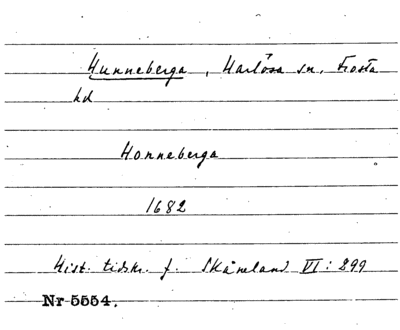 Hunneberga, Harlösa sn, Frosta
hd
Honneberga
1682
Hist. tidskr. f. Skåneland VI: 299
Nr 5554.